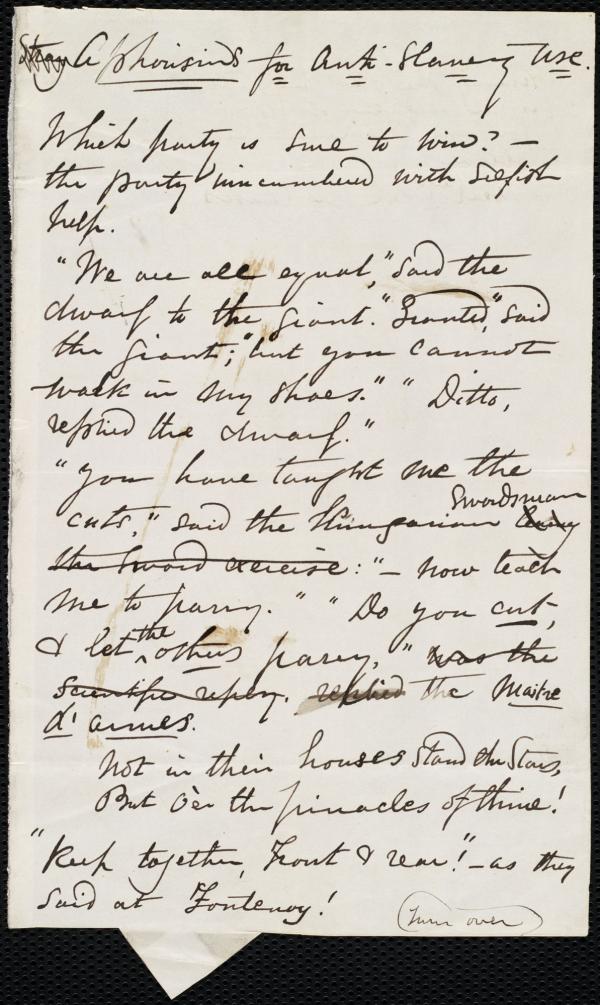 Stray Aphorisms for Anti-Slavery Use.
Which party is sure to win? —
the party unincumbered with selfish
help.
"We are all equal," said the
dwarf to the giant. "Granted," said
the giant; "but you cannot
walk in my shoes." "Ditto,
replied the dwarf."
"You have taught me the
Swordsman
cuts," said the Hungarian
the sword exercise: "— now teach
me to parry." "Do you cut,
& let the others parry," was the
scientific reply. replied the Maitre
d' armes.
Not in their houses stand the Stars,
But o'er the pinnacles of thine!
"Keep together, Front & rear!" — as they
said at Fontenoy!
(turn over)